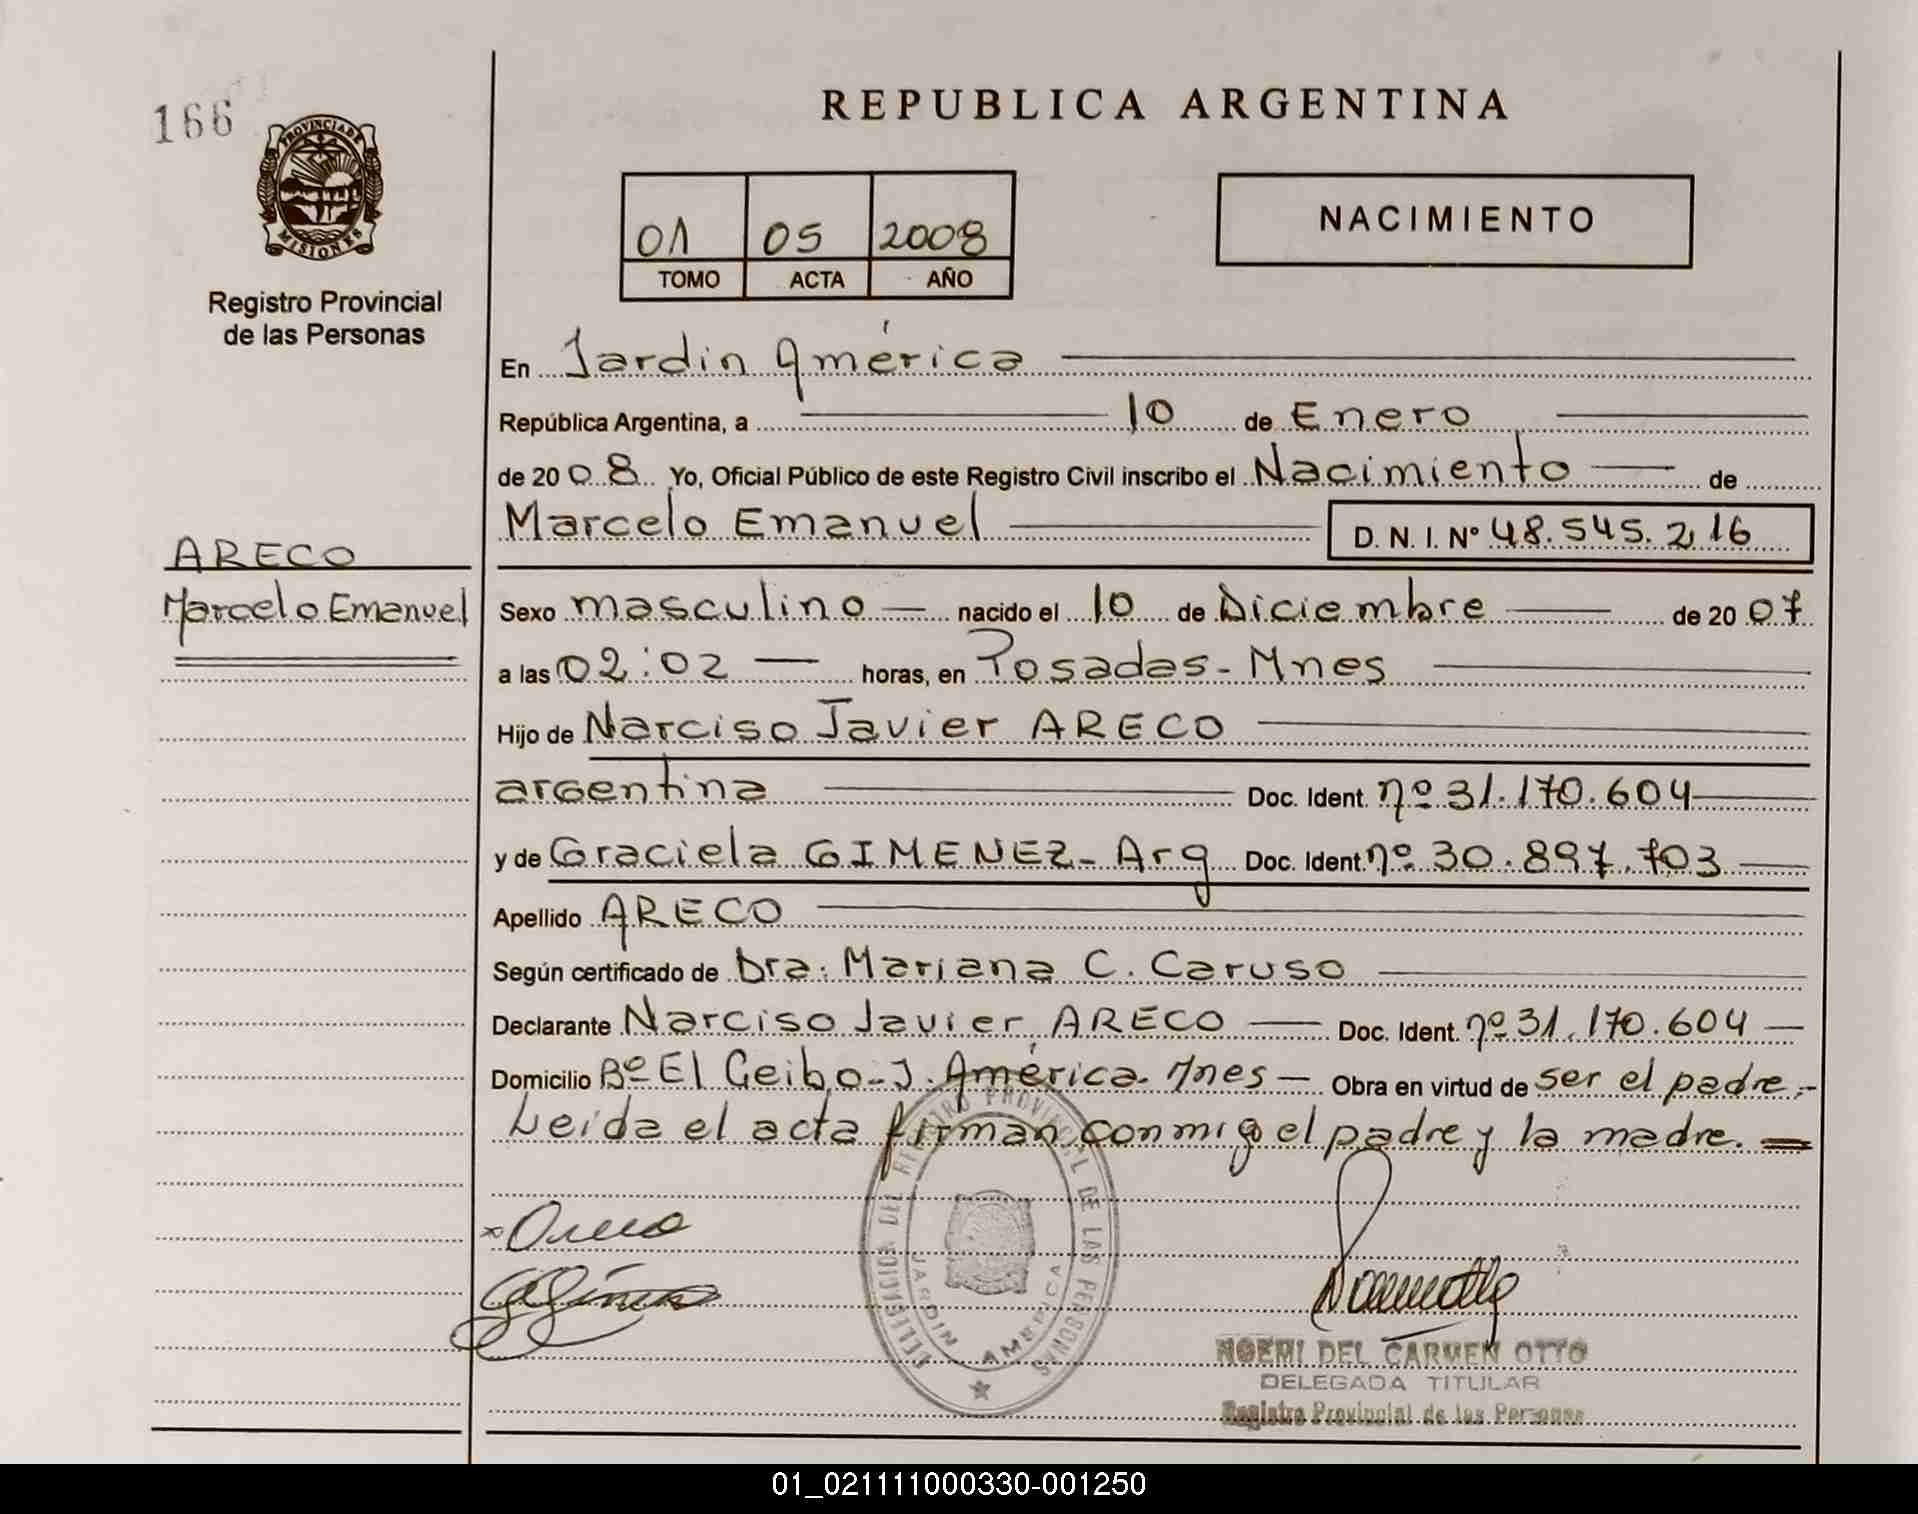 166
PROVINCIA DE
MISIONES
Registro Provincial
de las Personas
REPUBLICA ARGENTINA
01 05 2008
TOMO ACTA AÑO
NACIMIENTO
En Jardin América
República Argentina, a 10 de Enero
de 2008 Yo, Oficial Público de este Registro Civil inscribo el Nacimiento de
Marcelo Emanuel D. N. I. Nº 48.545.216
ARECO
Marcelo Emanuel
Sexo masculino nacido el 10 de Diciembre de 2007
a las 02:02 horas, en Posadas - Mnes
Hijo de Narciso Javier ARECO
argentina Doc. Ident. nº 31.170.604
y de Graciela GIMENEZ - Arg Doc. Ident. nº 30.897.703
Apellido ARECO
Según certificado de Dra. Mariana C. Caruso
Declarante Narciso Javier ARECO Doc. Ident. nº 31.170.604
Domicilio Bº El Ceibo - J. América - Mnes - Obra en virtud de ser el padre.-
Leida el acta firman conmigo el padre y la madre.
DELEGACION DEL REGISTRO PROVINCIAL DE LAS PERSONAS
JARDIN AMERICA
NOEMI DEL CARMEN OTTO
DELEGADA TITULAR
Registro Provincial de las Personas
01_021111000330-001250